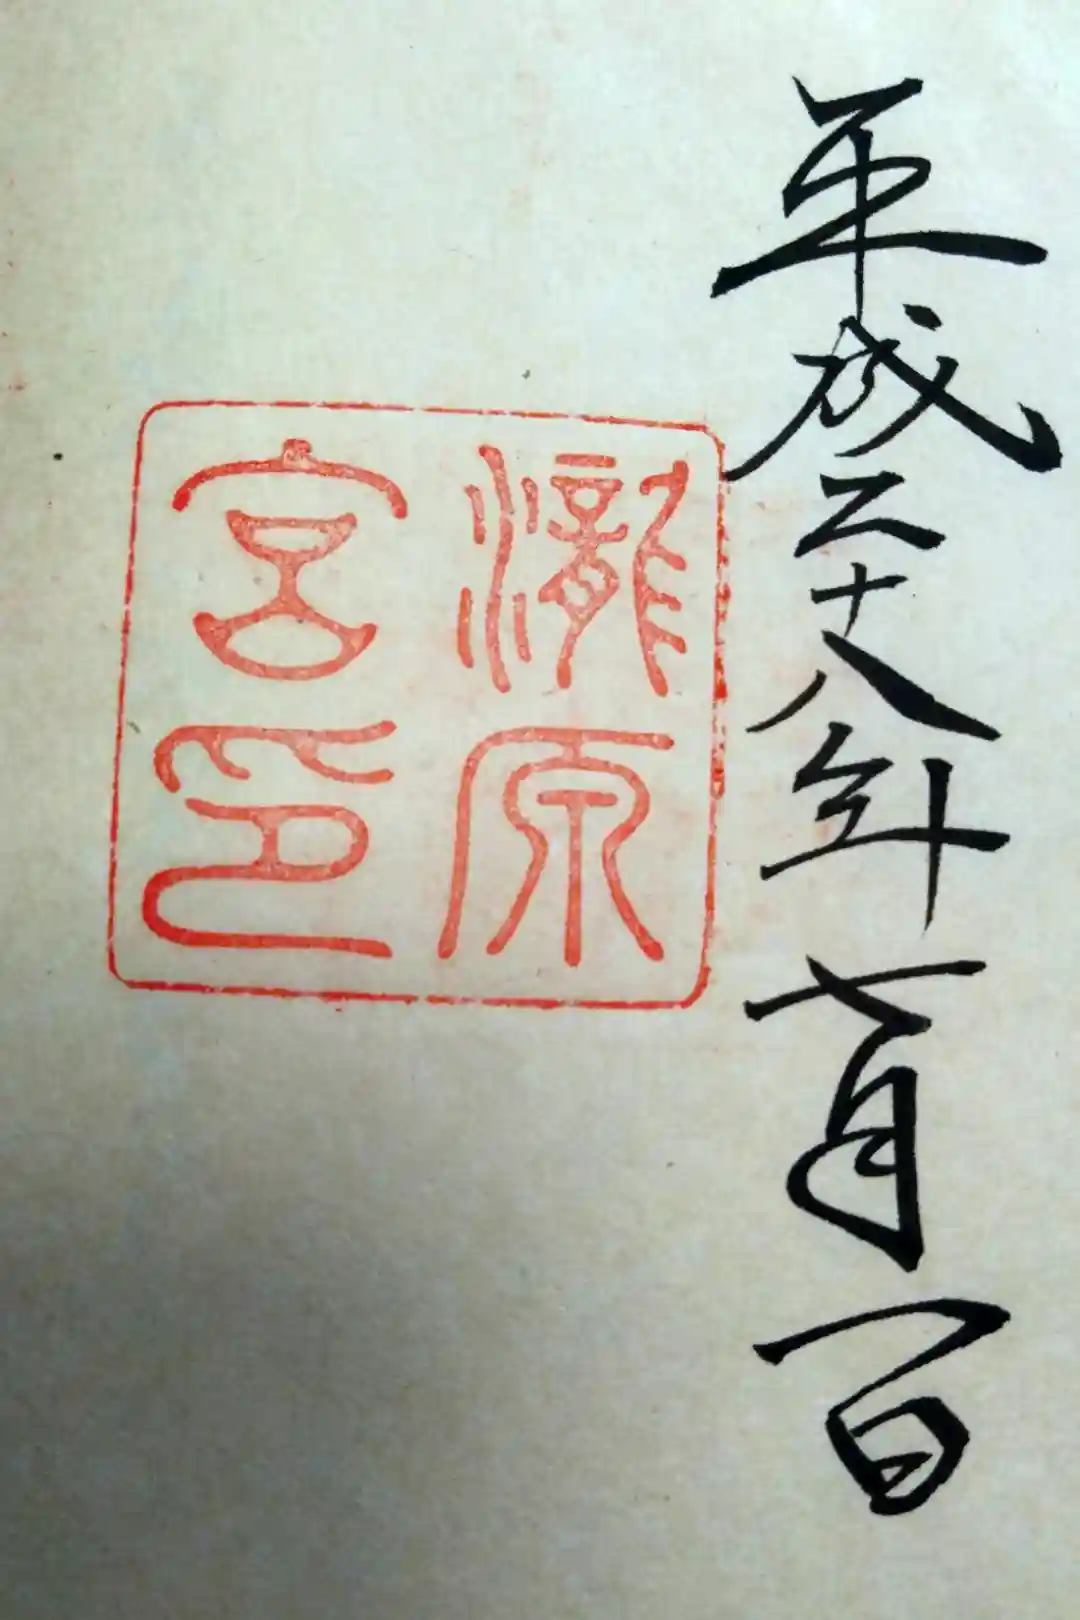 平成二十八年七月一日
瀧原
宮印